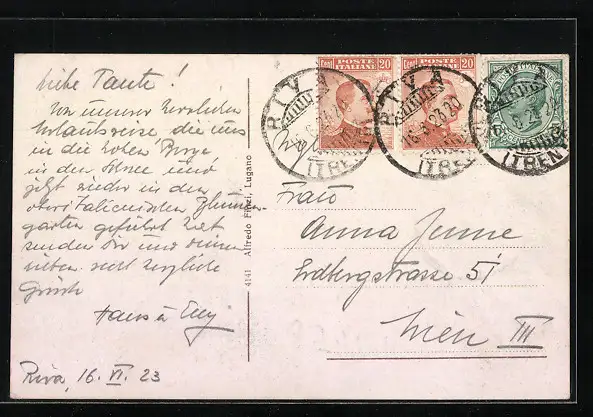 Liebe Tante!
Von unserer herrlichen
Urlaubsreise, die uns
in die hohen Berge
in den Schnee und
jetzt wieder in den
oberitalienischen Blumen-
garten geführt hat
senden Dir und deinen
lieben recht herzliche
Grüsse
Hans u. Elly
Riva, 16. VI. 23
4141 Alfredo Finzi, Lugano
Cent POSTE ITALIANE 20
Cent POSTE ITALIANE 20
POSTE ITALIANE
RIVA (TRENTO)
RIVA 16.6.23 20 (TRENTO)
RIVA (TRENTO)
Frau
Anna Jenne
Erdbergstrasse 51
Wien III